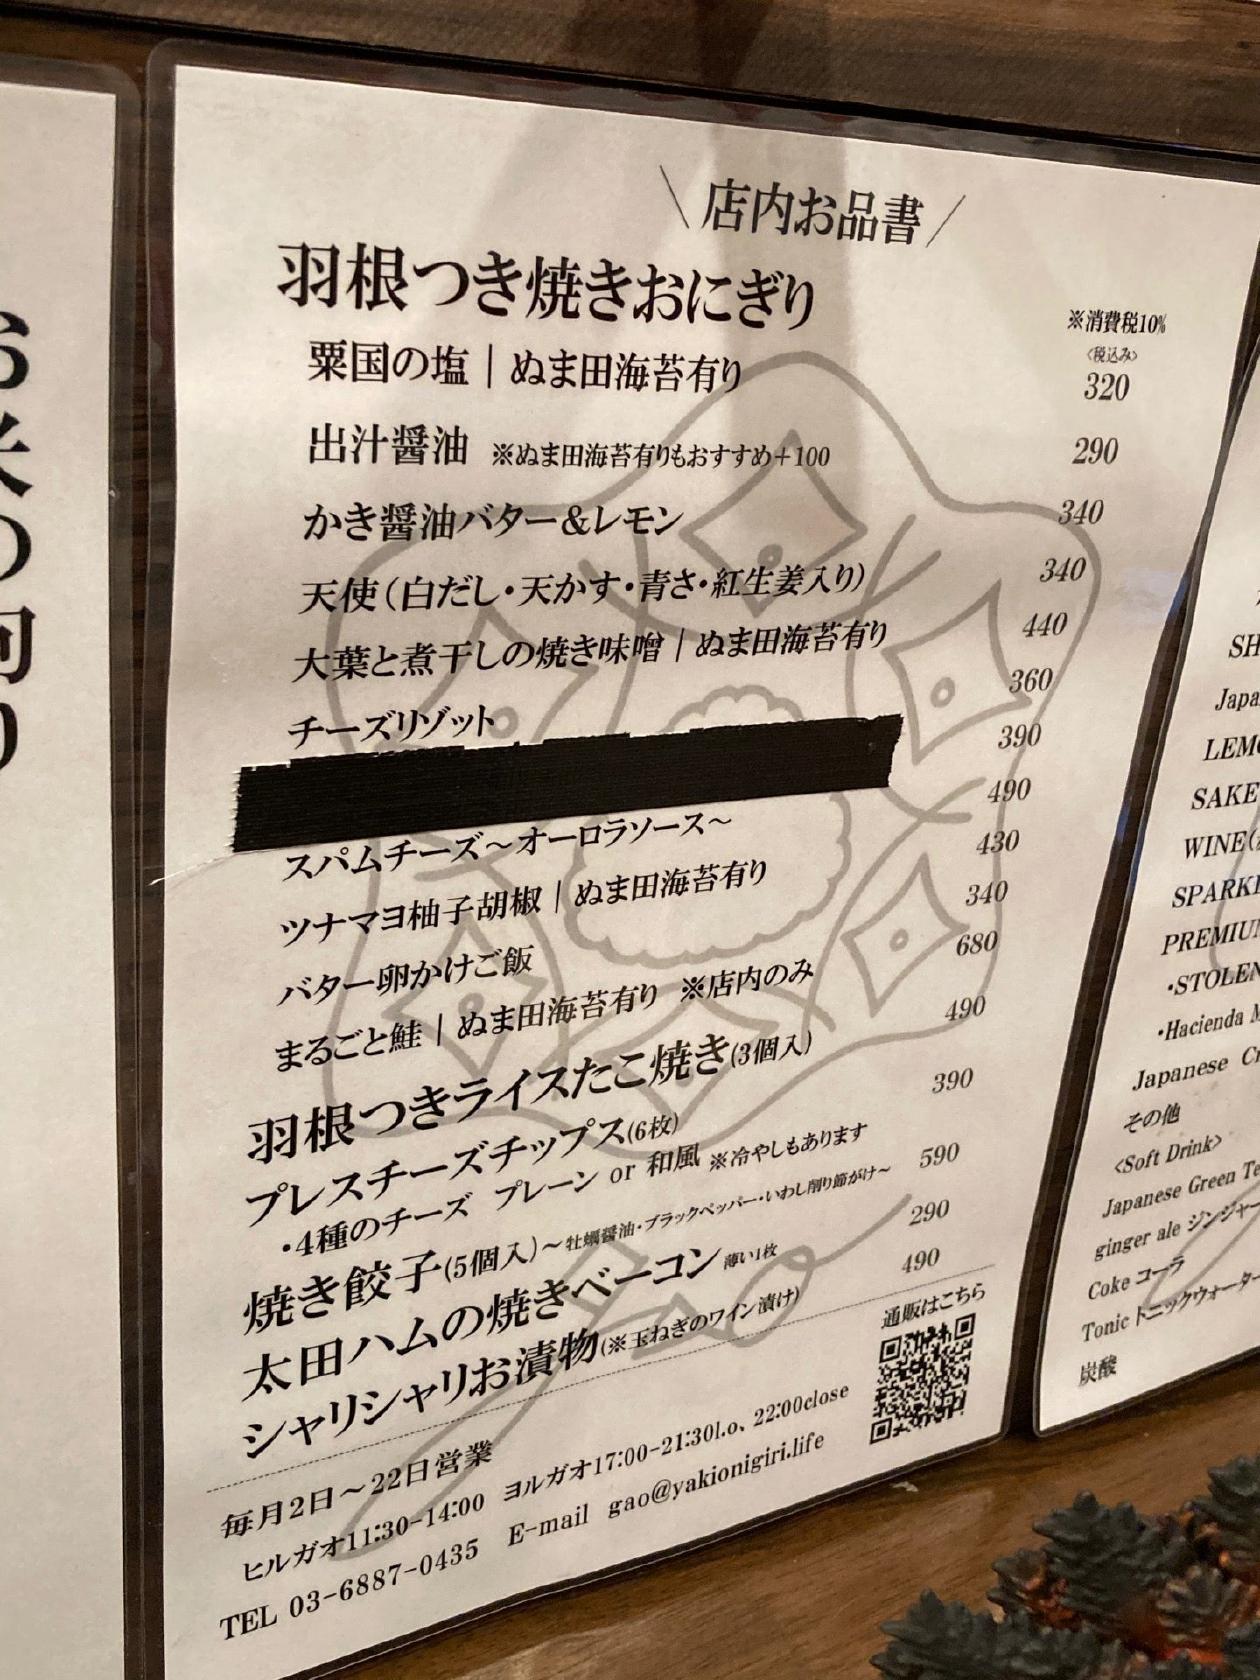 お米の何り
＼店内お品書／
羽根つき焼きおにぎり
※消費税10%
<税込み>
粟国の塩｜ぬま田海苔有り 320
出汁醤油 ※ぬま田海苔有りもおすすめ＋100 290
かき醤油バター＆レモン 340
天使（白だし・天かす・青さ・紅生姜入り） 340
大葉と煮干しの焼き味噌｜ぬま田海苔有り 440
チーズリゾット 360
390
スパムチーズ～オーロラソース～ 490
ツナマヨ柚子胡椒｜ぬま田海苔有り 430
バター卵かけご飯 340
まるごと鮭｜ぬま田海苔有り ※店内のみ 680
羽根つきライスたこ焼き(3個入) 490
プレスチーズチップス(6枚) 390
・4種のチーズ プレーン or 和風 ※冷やしもあります
焼き餃子(5個入)～牡蠣醤油・ブラックペッパー・いわし削り節がけ～ 590
太田ハムの焼きベーコン 薄い1枚 290
シャリシャリお漬物(※玉ねぎのワイン漬け) 490
通販はこちら
毎月2日～22日営業
ヒルガオ11:30-14:00 ヨルガオ17:00-21:30l.o、22:00close
TEL 03-6887-0435 E-mail gao@yakionigiri.life
SH
Japa
LEM
SAKE
WINE(
SPARK
PREMIUM
・STOLEN
・Hacienda M
Japanese Cr
その他
<Soft Drink>
Japanese Green Te
ginger ale ジンジャー
Coke コーラ
Tonic トニックウォーター
炭酸